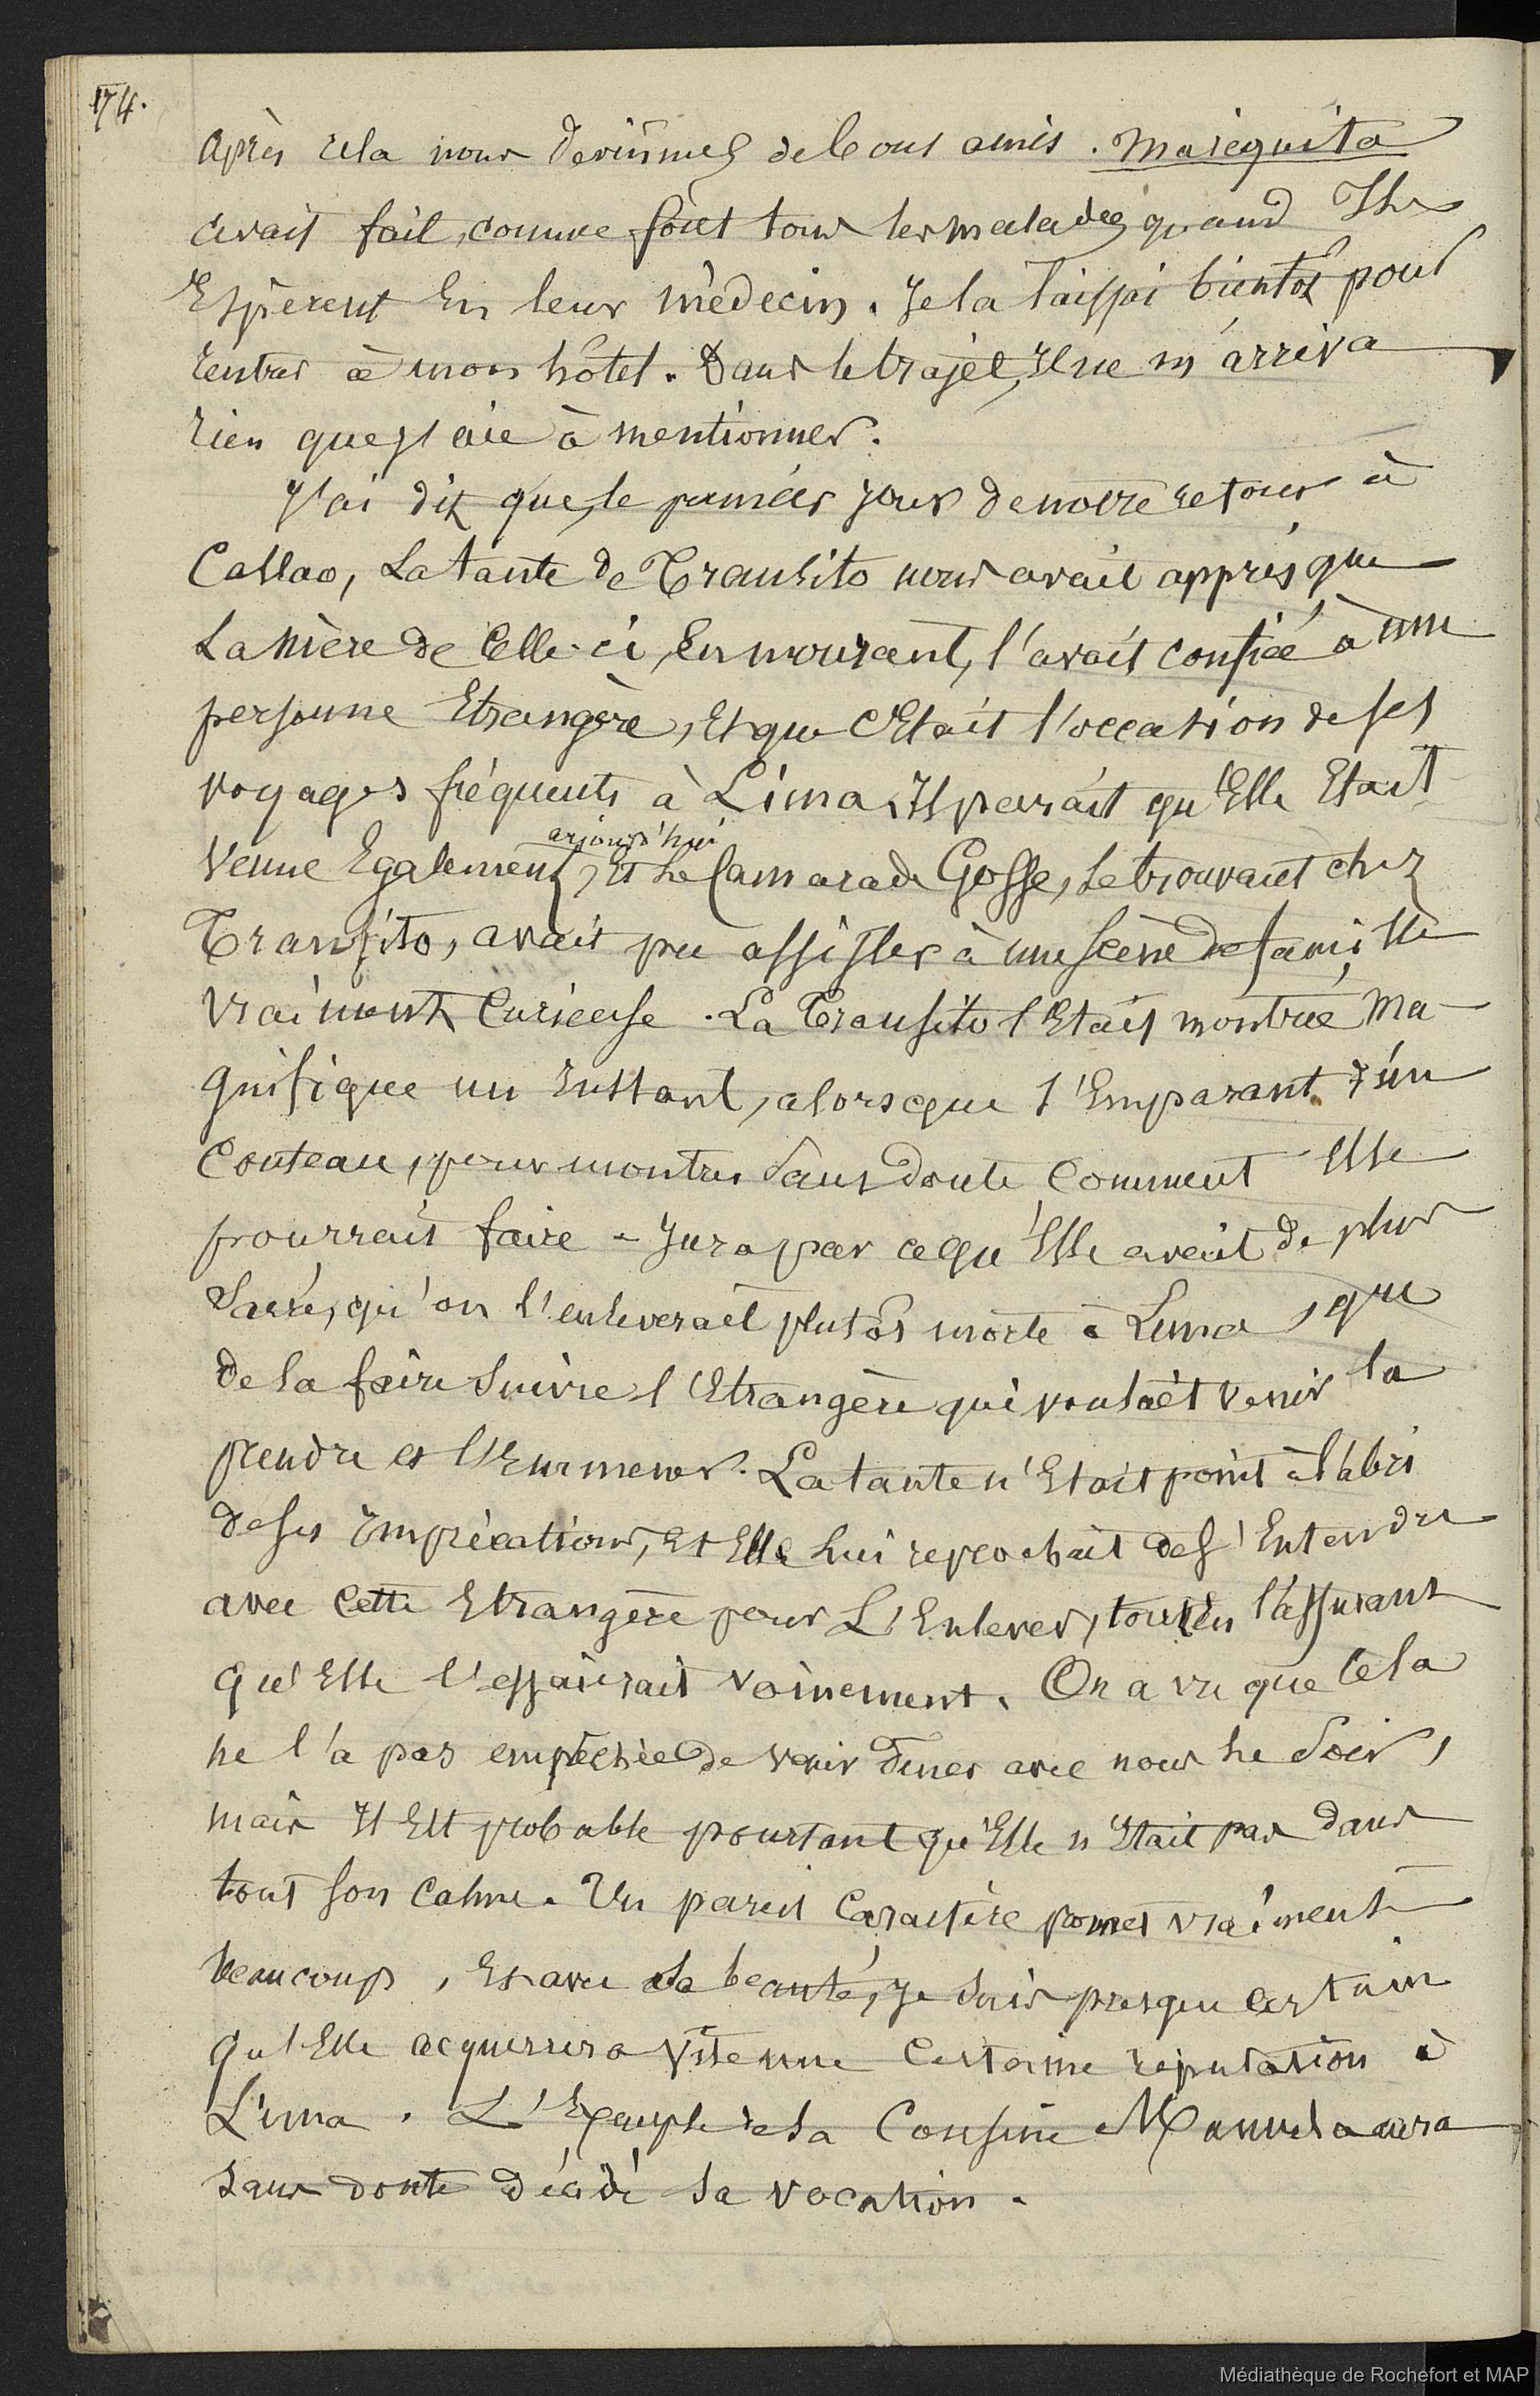 174.
après cela nous devinmes de bons amis. Mariquita
avait fait, comme font tous les malades quand Ils
Espèrent En leur mèdecin. Je la laissai bientôt pour
rentrer à mon hôtel. Dans le trajet, Il ne m'arriva
rien que j'aie à mentionner.
J'ai dit que, le premier jour de notre retour à
Callao, La tante de Transito nous avait appris que
La Mère de Celle-ci, En mourant, l'avait confiée à une
personne Etrangère, Et que c'Etait l'occasion de ses
voyages fréquents à Lima. Il parait qu'Elle Etait
aujourd'hui
Venue Egalement, Et Le Camarade Gosse, se trouvant chez
Transito, avait pu assister à une scène de famille
vraiment Curieuse. La Transito s'Etait montrée Ma-
gnifique un Instant, alors que s'Emparant d'un
Couteau, pour montrer sans doute Comment Elle
pourrait faire - Jura par ce qu'Elle avait de plus
Sacré, qu'on l'enleverait plutôt morte à Lima, que
de la faire suivre l'Etrangère qui voulait venir la
prendre et l'Emmener. La tante n'Etait point à l'abri
de ses Imprécations, Et Elle Lui reprochait de s'Entendre
avec Cette Etrangère pour L'Enlever, tout En l'assurant
qu'Elle l'essaierait vainement. On a vu que Cela
ne l'a pas empêchée de venir diner avec nous Le Soir,
mais Il Est probable pourtant qu'Elle n'Etait pas dans
tout son Calme. Un pareil Caractère promet vraiment
beaucoup, Et avec sa beauté, je suis presque Certain
qu'Elle acquerrera vite une Certaine réputation à
Lima. L'Exemple de sa Cousine Manuela aura
sans doute décidé sa vocation.
Médiathèque de Rochefort et MAP